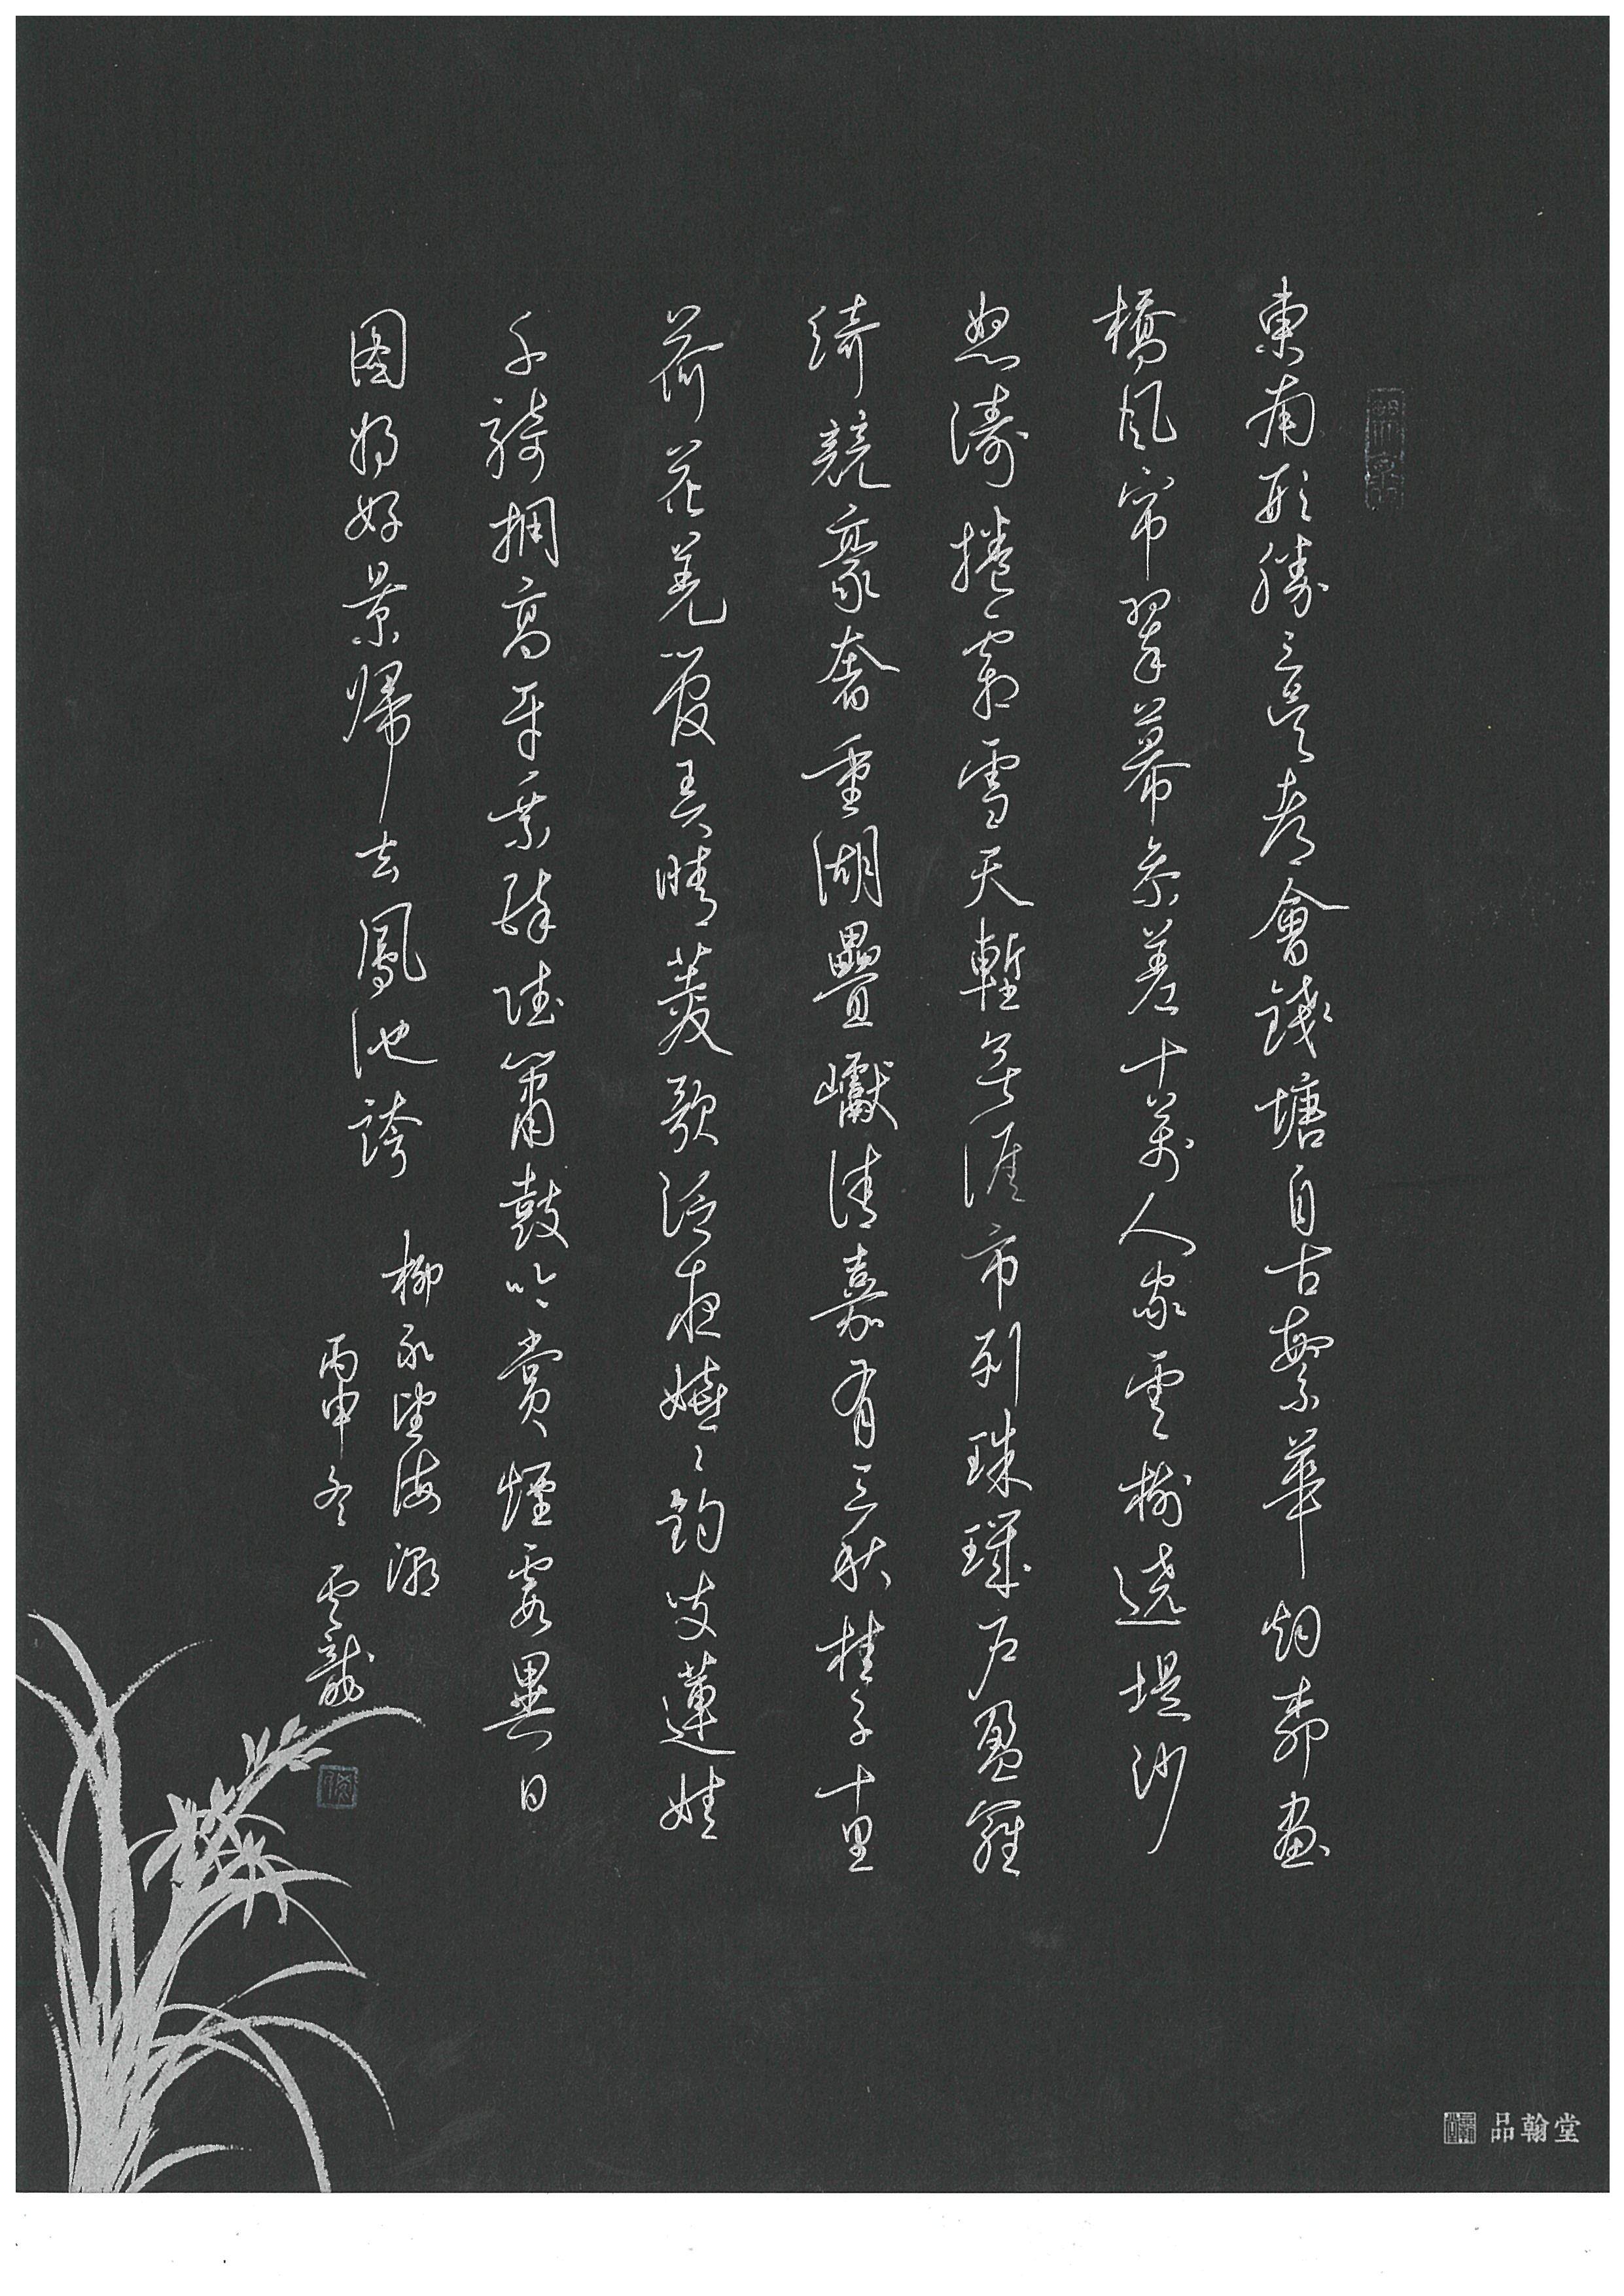 東南形勝三吳都會錢塘自古繁華烟柳畫
橋風帘翠幕參差十萬人家雲樹遶堤沙
怒濤捲霜雪天塹無涯市列珠璣户盈羅
綺競豪奢重湖疊巘清嘉有三秋桂子十里
荷花羌管弄晴菱歌泛夜嬉々釣叟蓮娃
千騎擁高牙乘醉聽簫鼓吟賞煙霞異日
图將好景歸去鳳池誇
柳永望海潮
丙申冬 雲龍
品翰堂